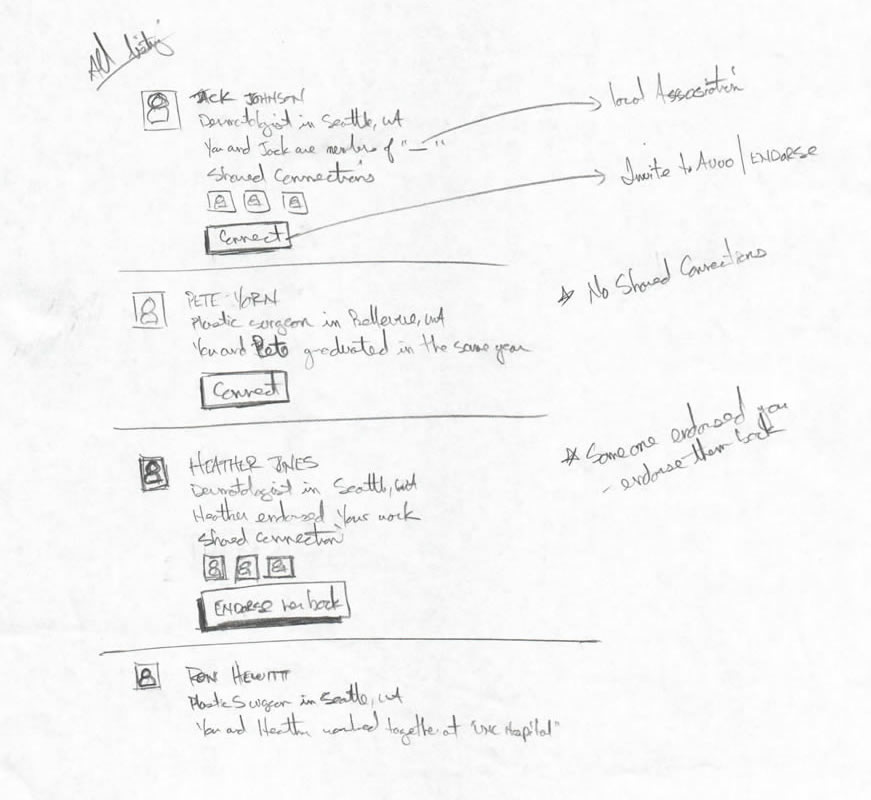 All listing
JACK JOHNSON
Dermatologist in Seattle, WA
You and Jack are members of "—"
Shared Connections
Connect
local Association
Invite to Avvo / ENDORSE
PETE YORN
Plastic surgeon in Bellevue, WA
You and Pete graduated in the same year
Connect
* No Shared Connections
HEATHER JONES
Dermatologist in Seattle, WA
Heather endorsed your work
Shared connection
ENDORSE her back
* Someone endorsed you
- endorse them back
RON HEWITT
Plastic Surgeon in Seattle, WA
You and Heather worked together at "UNC Hospital"